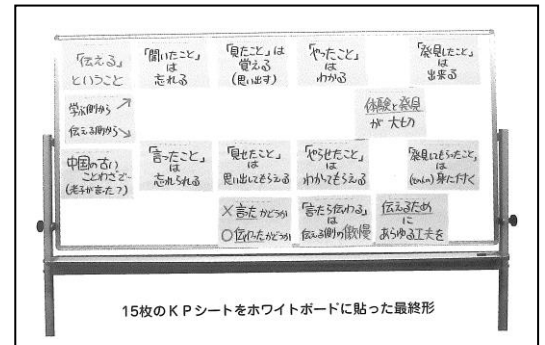 「伝える」
ということ
「聞いたこと」
は
忘れる
「見たこと」は
覚える
(思い出す)
「やったこと」
は
わかる
「発見したこと」
は
出来る
学ぶ側から
伝える側から
体験と発見
が 大切
中国の古い
ことわざで…
(老子が言った?)
「言ったこと」
は
忘れられる
「見せたこと」
は
思い出してもらえる
「やらせたこと」
は
わかってもらえる
「発見してもらったこと」
は
身に付く
×言たかどうか
○伝わったかどうか
「言たら伝わる」
は
伝える側の傲慢
伝えるため
に
あらゆる工夫を
15枚のKPシートをホワイトボードに貼った最終形